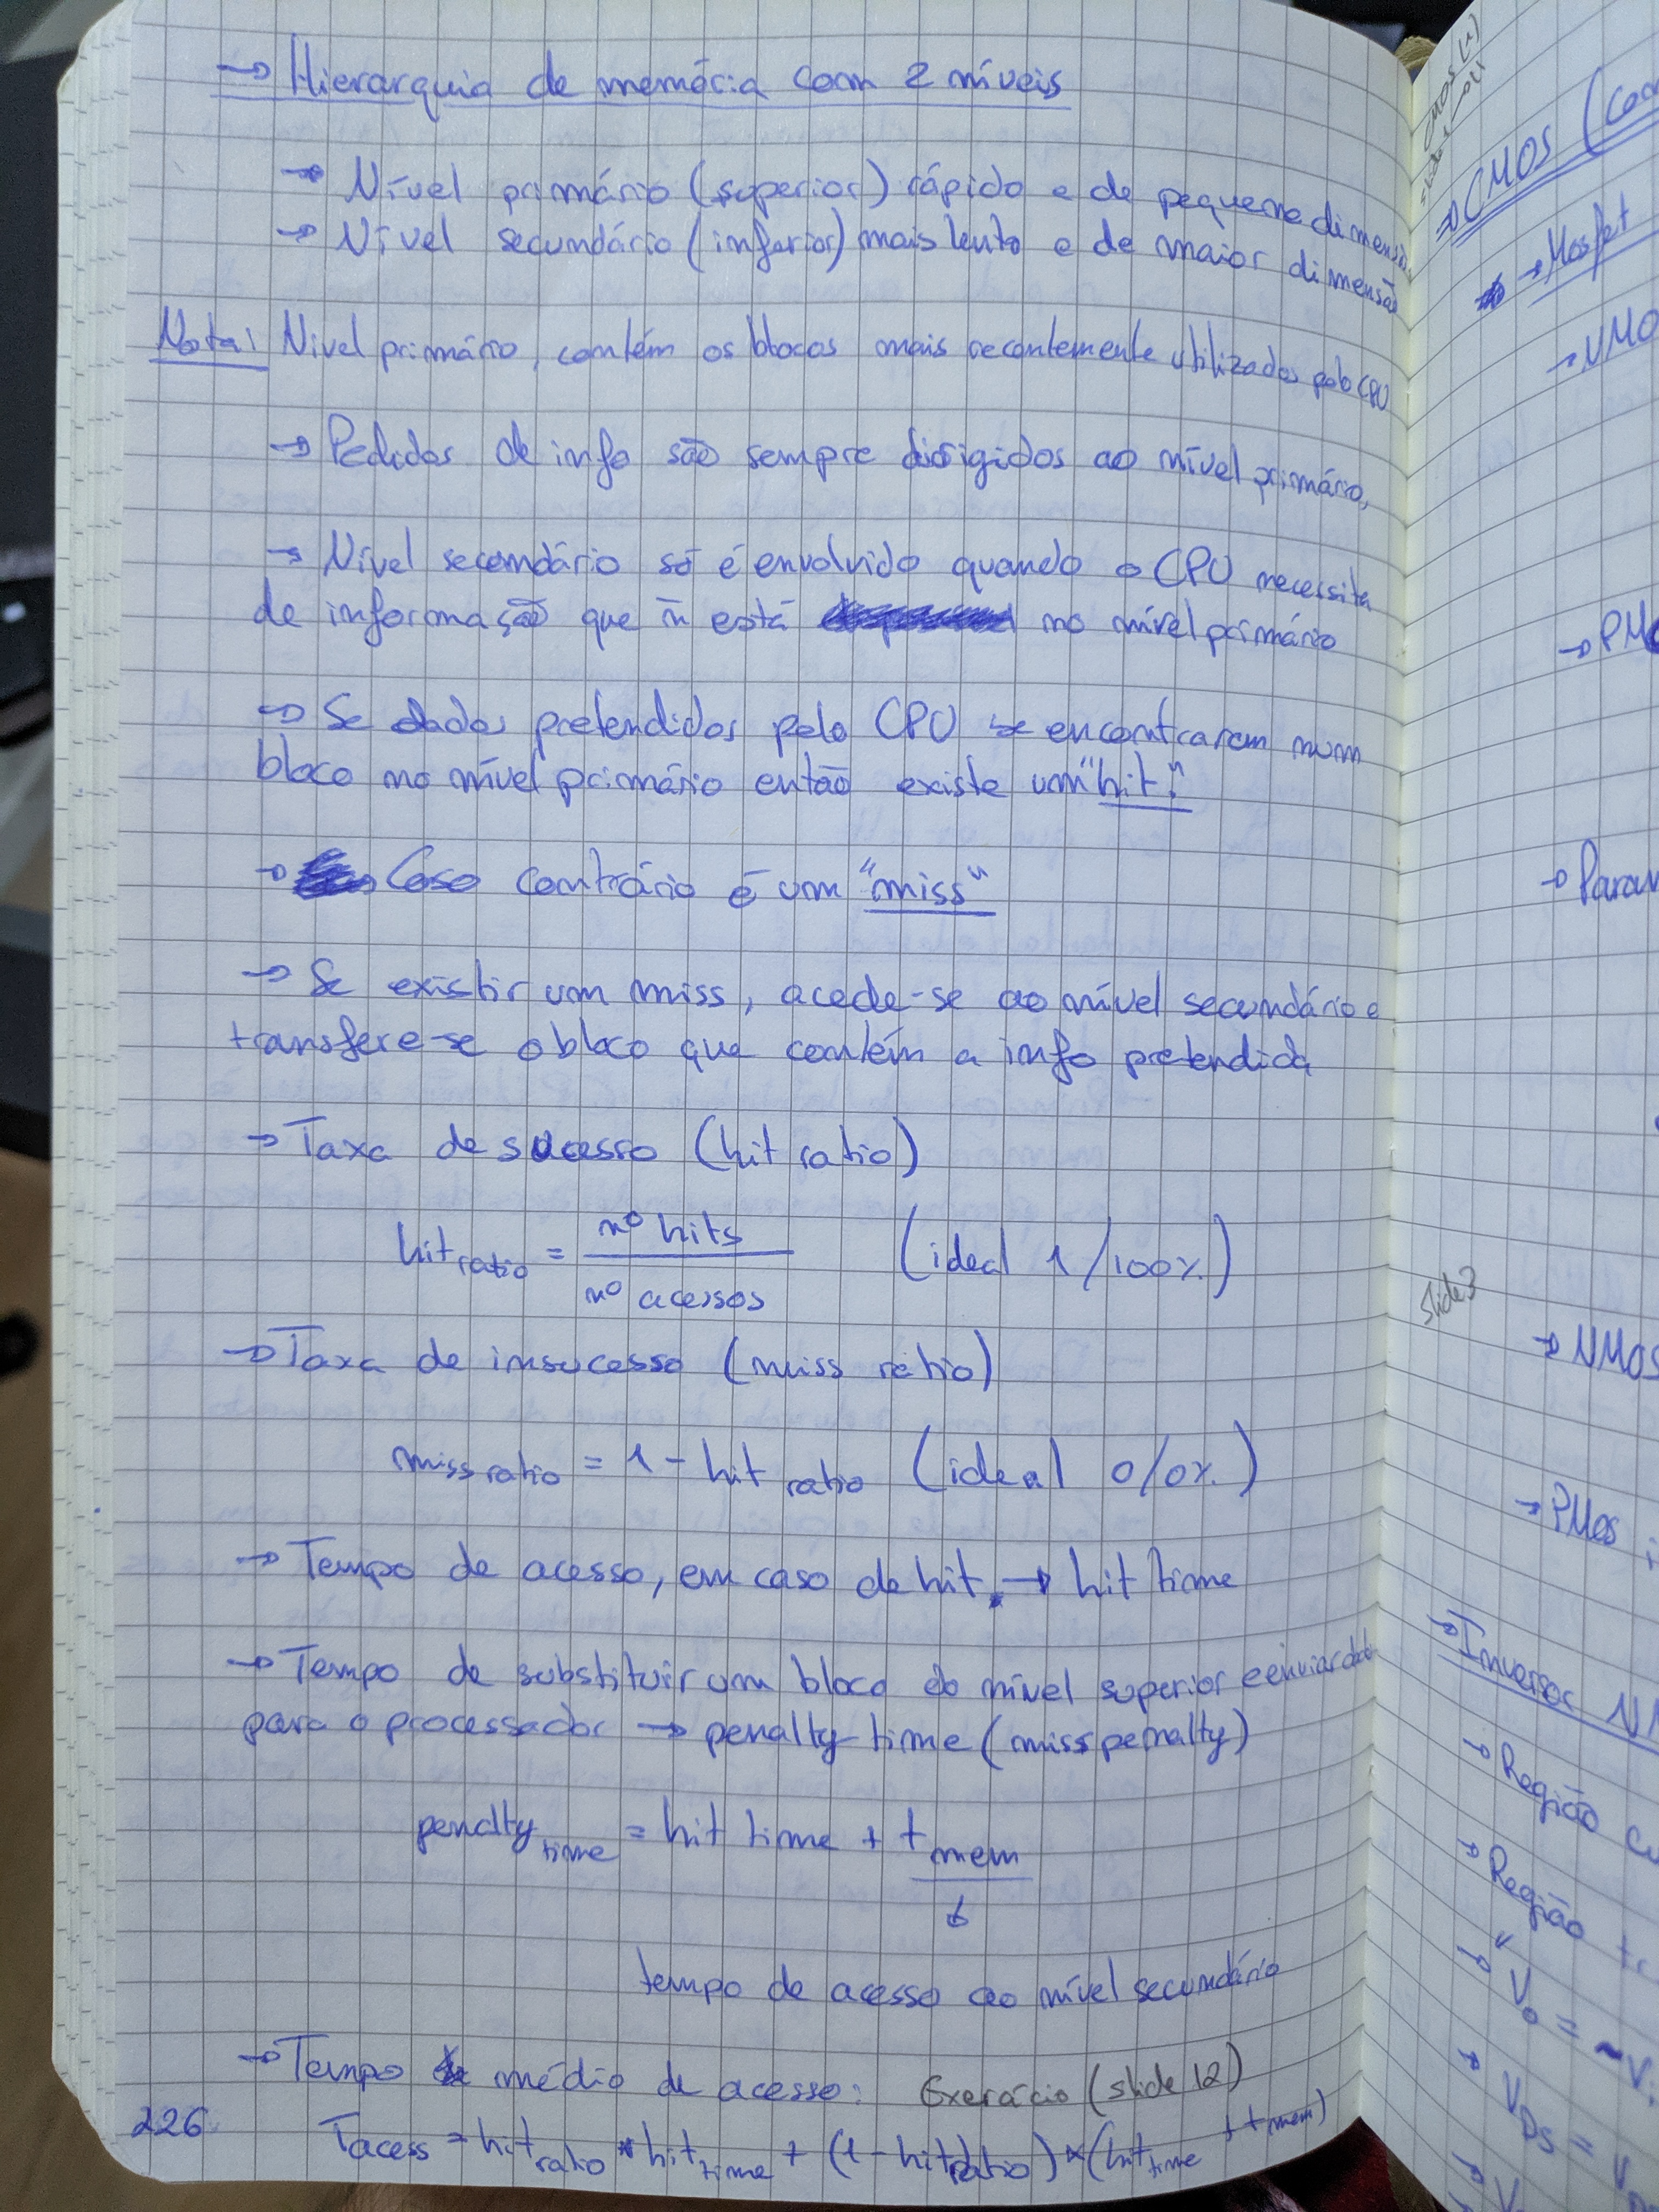 → Hierarquia de memória com 2 níveis
→ Nível primário (superior) rápido e de pequena dimensão
→ Nível secundário (inferior) mais lento e de maior dimensão
Nota: Nível primário, contém os blocos mais recentemente utilizados pelo CPU
→ Pedidos de info são sempre dirigidos ao nível primário,
→ Nível secundário só é envolvido quando o CPU necessita
de informação que ñ está no nível primário
→ Se dados pretendidos pelo CPU se encontrarem num
bloco no nível primário então existe um "hit".
→ Caso contrário é um "miss"
→ Se existir um miss, acede-se ao nível secundário e
transfere-se o bloco que contém a info pretendida
→ Taxa de sucesso (hit ratio)
hit ratio = nº hits / nº acessos (ideal 1/100%)
→ Taxa de insucesso (miss ratio)
miss ratio = 1 - hit ratio (ideal 0/0%)
→ Tempo de acesso, em caso de hit → hit time
→ Tempo de substituir um bloco do nível superior e enviar
para o processador → penalty time (miss penalty)
penalty time = hit time + t mem
↓
tempo de acesso ao nível secundário
→ Tempo médio de acesso: Exercício (slide 12)
Tacess = hit ratio * hit time + (1 - hit ratio) * (hit time + t mem)
226
CMOS (1)
⇒ CMOS (
→ Mosfet
→ NMO
→ PMO
→ Param
slide 3
→ NMOS
→ PMos
→ Inversor
→ Região
→ Região
→ Vo =
→ VDS =
→ V